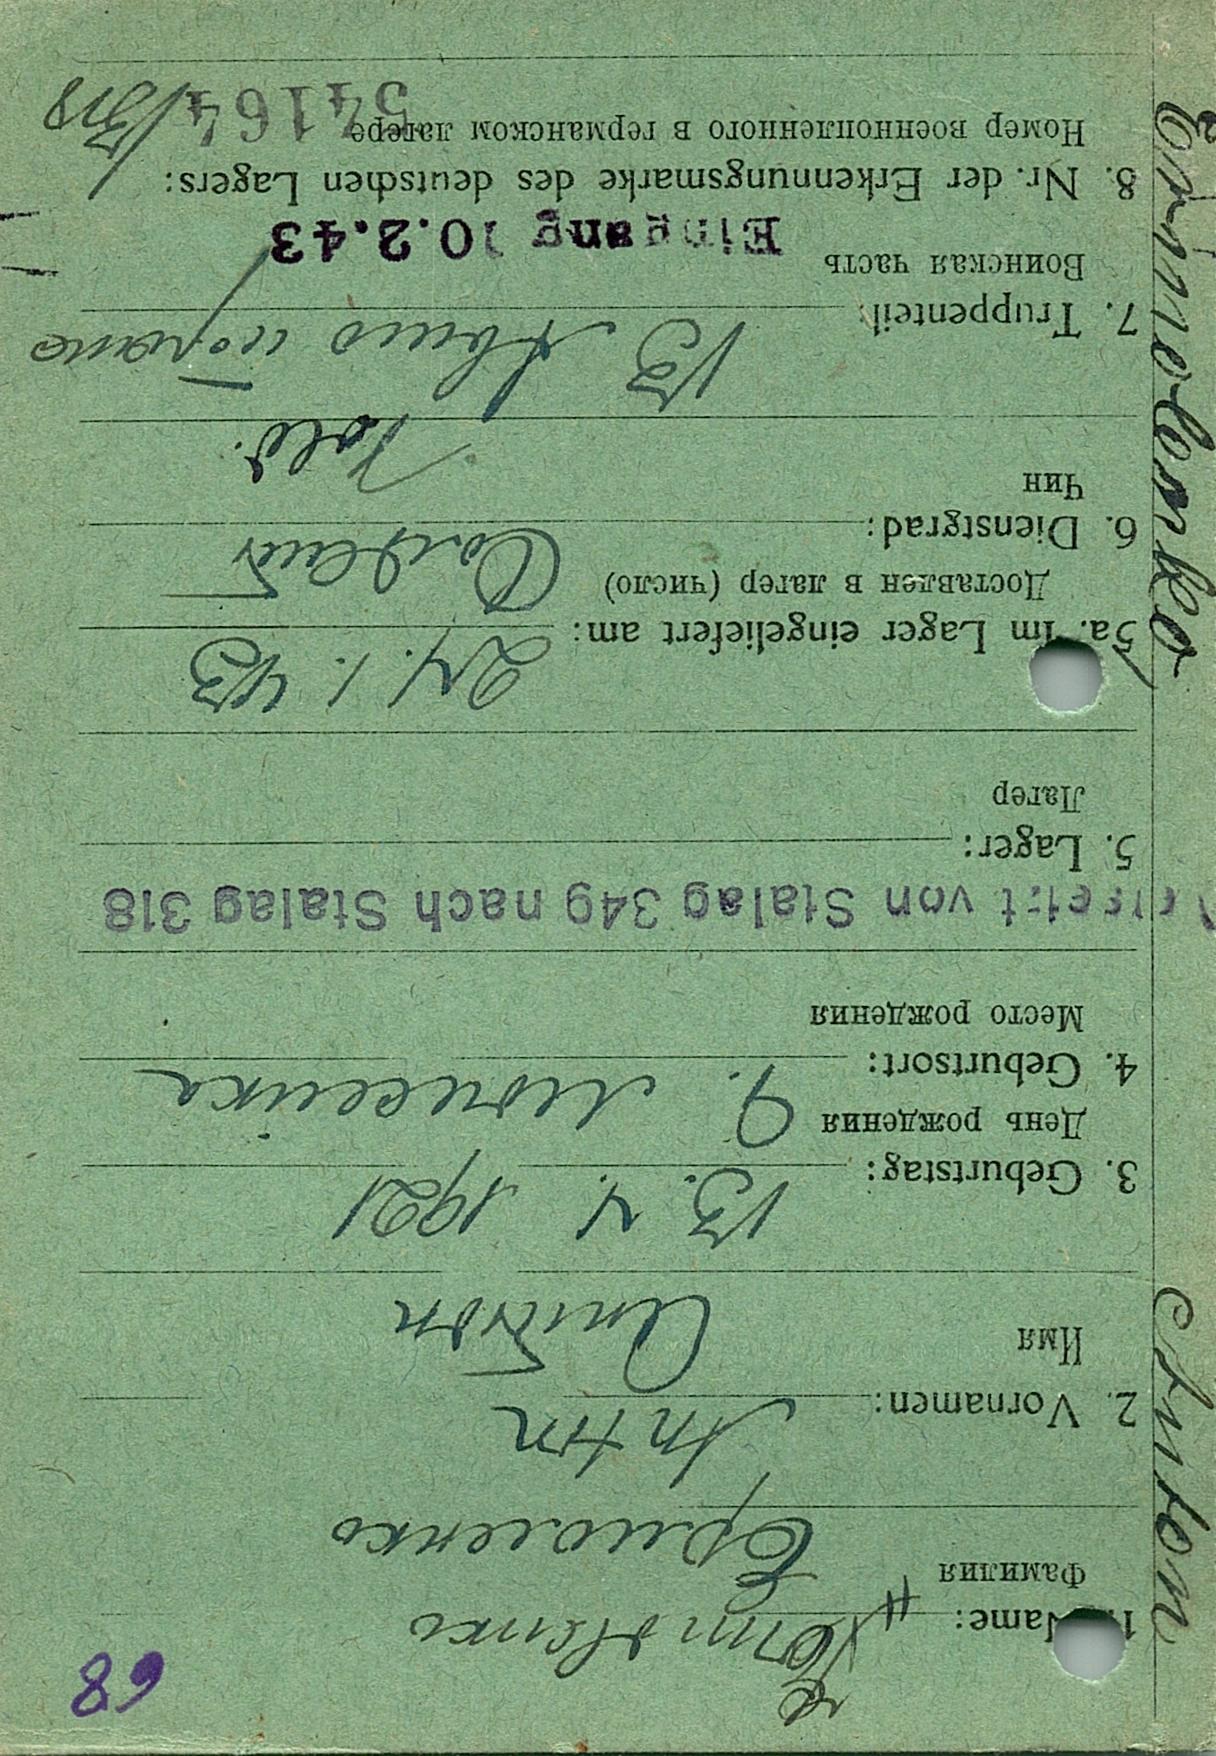 68
1. Name:
Фамилия
Ермоленко
2. Vornamen: Anton
Имя
Антон
3. Geburtstag: 13. 4. 1921
День рождения
4. Geburtsort:
Место рождения
Versetzt von Stalag 349 nach Stalag 318
5. Lager:
Лагер
5a. im Lager eingeliefert am: 24. 1. 43
Доставлен в лагер (число)
Солдат
6. Dienstgrad:
Чин
Sold.
7. Truppenteil: 13
Воинская часть
Eingang 10.2.43
8. Nr. der Erkennungsmarke des deutschen Lagers:
Номер военнопленного в германском лагере 54164 /318
Ermolenko
Anton